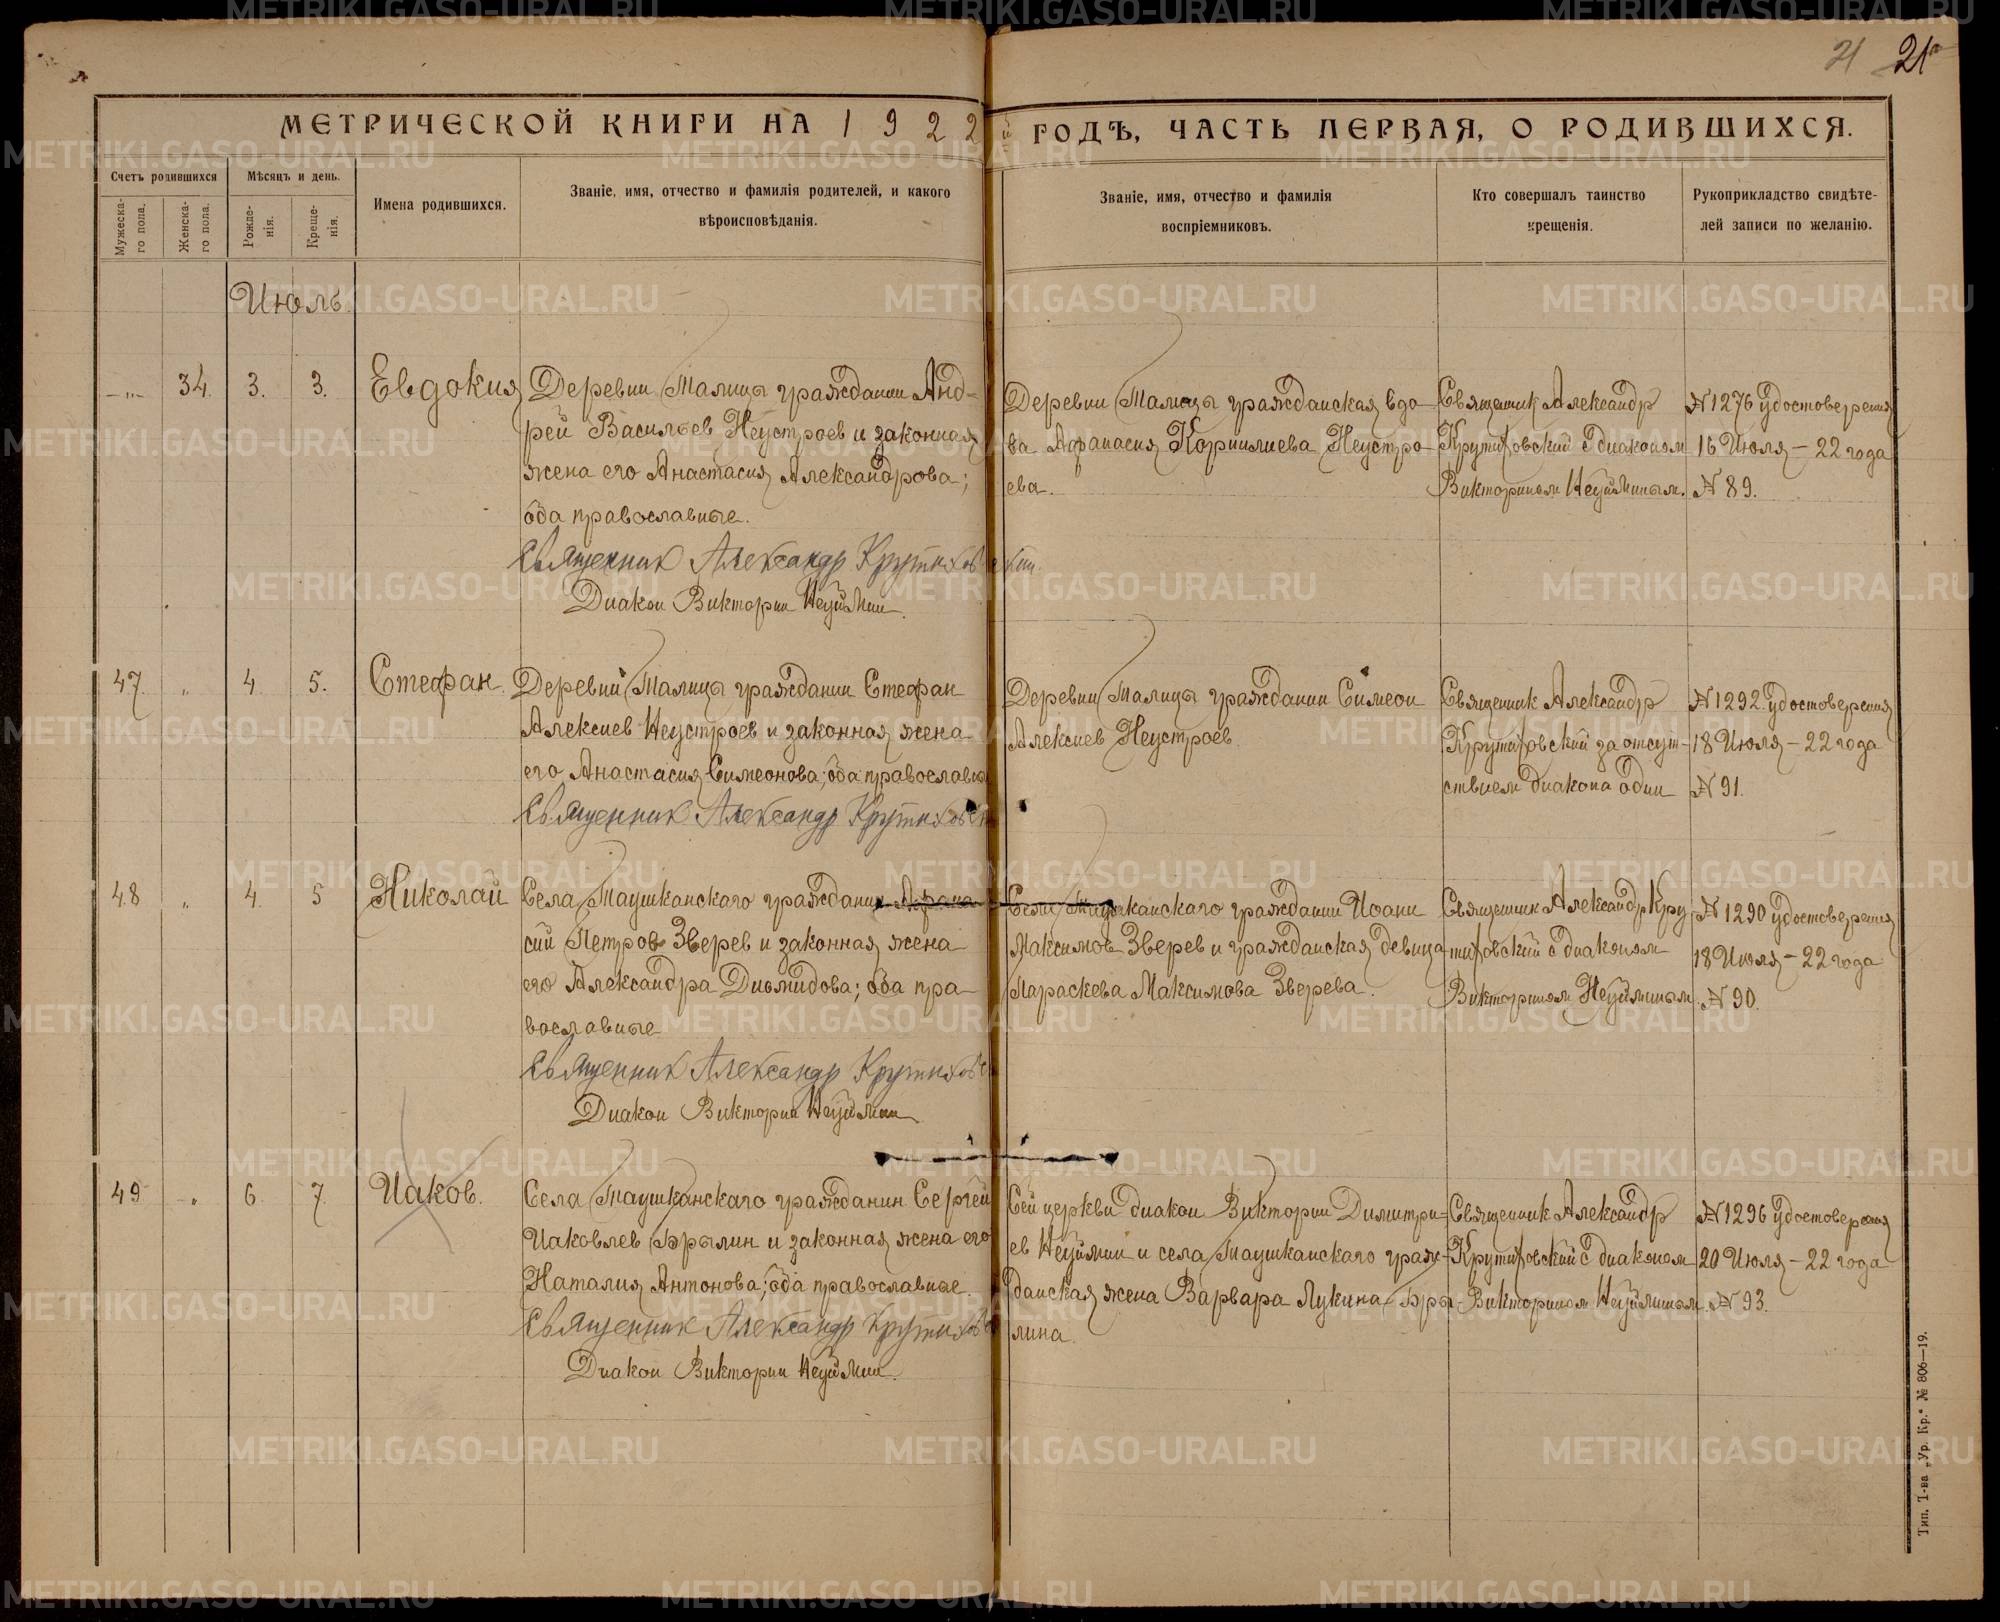 21 21
МЕТРИЧЕСКОЙ КНИГИ НА 1922й ГОДЪ, ЧАСТЬ ПЕРВАЯ, О РОДИВШИХСЯ.
Счетъ родившихся
Мужеска-го пола.
Женска-го пола.
Мѣсяцъ и день.
Рожде-нія.
Креще-нія.
Имена родившихся.
Званіе, имя, отчество и фамилія родителей, и какого
вѣроисповѣданія.
Званіе, имя, отчество и фамилія
воспріемниковъ.
Кто совершалъ таинство
крещенія.
Рукоприкладство свидѣте-
лей записи по желанію.
Июль
-"- 34. 3. 3. Евдокия
Деревни Талицы гражданин Анд-
рей Васильев Неустроев и законная
жена его Анастасия Александрова;
оба православные.
Священник Александр Крутиховский
Диакон Викторин Неуймин.
Деревни Талицы гражданская вдо-
ва Афанасия Корнилиева Неустро-
ева.
Священник Александр
Крутиховский с диаконом
Викторином Неуйминым.
№ 1276 удостоверения
16 Июля – 22 года
№ 89.
47. " 4. 5. Стефан.
Деревни Талицы гражданин Стефан
Алексиев Неустроев и законная жена
его Анастасия Симеонова; оба православны
Священник Александр Крутиховск
Деревни Талицы гражданин Симеон
Алексиев Неустроев.
Священник Александр
Крутиховский за отсут-
ствием диакона один
№ 1292 удостоверения
18 Июля – 22 года
№ 91.
48 " 4. 5 Николай
Села Таушканскаго гражданин Афана
сий Петров Зверев и законная жена
его Александра Диомидова; оба пра-
вославные
Священник Александр Крутиховс
Диакон Викторин Неуймин
Села Таушканскаго гражданин Иоанн
Максимов Зверев и гражданская девица
Параскева Максимова Зверева.
Священник Александр Кру
тиховский с диаконом
Викторином Неуйминым
№ 1290 удостоверения
18 Июля – 22 года
№ 90.
49 " 6. 7. Иаков.
Села Таушканскаго гражданин Сергей
Иаковлев Брылин и законная жена его
Наталия Антонова; оба православные.
Священник Александр Крутиховс
Диакон Викторин Неуймин.
Сей церкви диакон Викторин Димитри-
ев Неуймин и села Таушканскаго граж-
данская жена Варвара Лукина Бры-
лина.
Священник Александр
Крутиховский с диаконом
Викторином Неуйминым.
№ 1296 удостоверения
20 Июля – 22 года
№ 93.
Тип. Т-ва „Ур. Кр." № 806—19.
METRIKI.GASO-URAL.RU